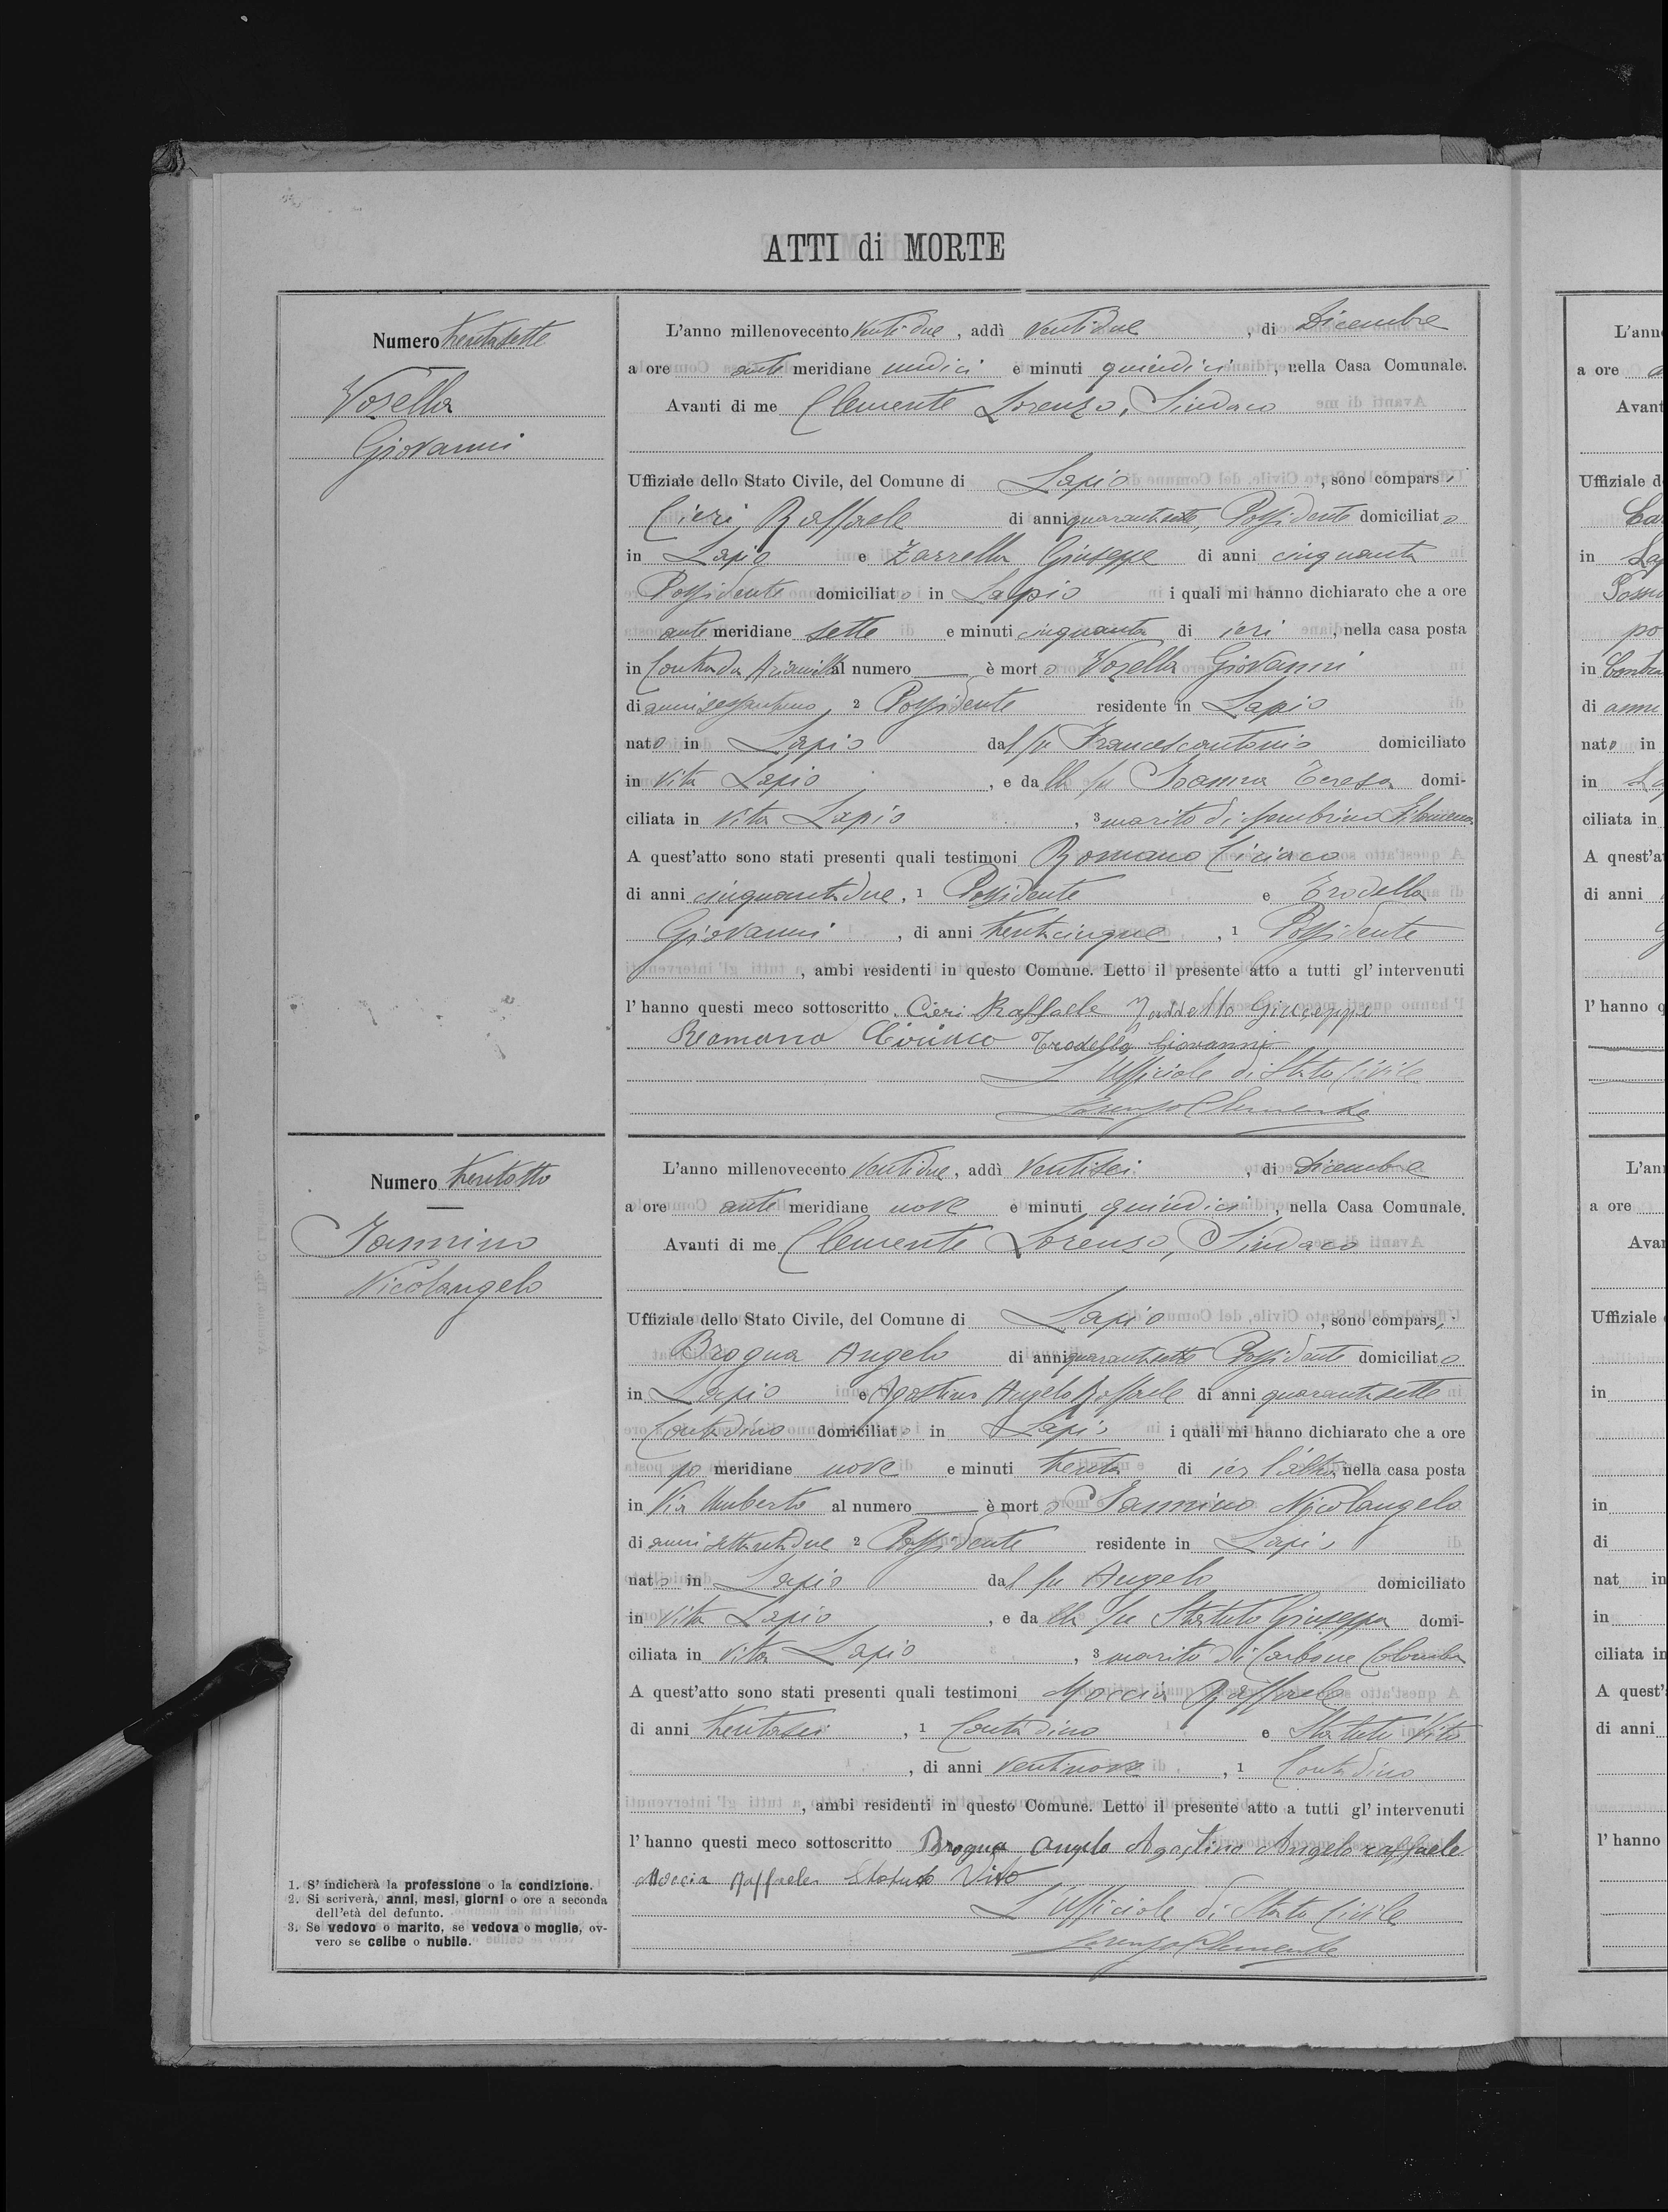 ATTI di MORTE
Numero trentasette
Vosella
Giovanni
L'anno millenovecento ventidue, addì ventidue, di Dicembre
a ore ante meridiane undici e minuti quindici, nella Casa Comunale.
Avanti di me Clemente Lorenzo, Sindaco
Uffiziale dello Stato Civile, del Comune di Lapio, sono comparsi
Cieri Raffaele di anni quarantasette, Possidente domiciliato
in Lapio e Zarrella Giuseppe di anni cinquanta
Possidente domiciliato in Lapio i quali mi hanno dichiarato che a ore
ante meridiane sette e minuti cinquanta di ieri, nella casa posta
in Contrada Arianiello al numero — è morto Vosella Giovanni
di anni sessantuno, 2 Possidente residente in Lapio
nato in Lapio dal fu Francescantonio domiciliato
in vita Lapio, e dalla fu Teresa domi-
ciliata in vita Lapio, 3 marito di Filomena
A quest'atto sono stati presenti quali testimoni Romano Ciriaco
di anni cinquantadue, 1 Possidente e Trodella
Giovanni, di anni trentacinque, 1 Possidente
, ambi residenti in questo Comune. Letto il presente atto a tutti gl'intervenuti
l'hanno questi meco sottoscritto. Cieri Raffaele Zarrella Giuseppe
Romano Ciriaco Trodella Giovanni
L'Ufficiale di Stato Civile
Lorenzo Clemente
Numero trentotto
Iannino
Nicolangelo
L'anno millenovecento ventidue, addì ventisei, di Dicembre
a ore ante meridiane nove e minuti quindici, nella Casa Comunale.
Avanti di me Clemente Lorenzo, Sindaco
Uffiziale dello Stato Civile, del Comune di Lapio, sono comparsi
Brogna Angelo di anni quarantasette Possidente domiciliato
in Lapio e Agostino Angelo Raffaele di anni quarantasette
Contadino domiciliato in Lapio i quali mi hanno dichiarato che a ore
po meridiane nove e minuti trenta di ier l'altro nella casa posta
in Via Umberto al numero — è morto Iannino Nicolangelo
di anni settantadue 2 Possidente residente in Lapio
nato in Lapio dal fu Angelo domiciliato
in vita Lapio, e dalla fu Statuto Giuseppa domi-
ciliata in vita Lapio, 3 marito di Carbone Colomba
A quest'atto sono stati presenti quali testimoni Moccia Raffaele
di anni trentasei, 1 Contadino e Statuto Vito
, di anni ventinove, 1 Contadino
, ambi residenti in questo Comune. Letto il presente atto a tutti gl'intervenuti
l'hanno questi meco sottoscritto Brogna Angelo Agostino Angelo raffaele
Moccia Raffaele Statuto Vito
L'Ufficiale di Stato Civile
Lorenzo Clemente
1. S'indicherà la professione o la condizione.
2. Si scriverà, anni, mesi, giorni o ore a seconda
dell'età del defunto.
3. Se vedovo o marito, se vedova o moglie, ov-
vero se celibe o nubile.
L'ann
a ore
Avant
Uffiziale d
in
in
di anni
nato in
in
ciliata in
A quest'a
di anni
l'hanno q
L'an
a ore
Avan
Uffiziale
in
in
di
nat in
in
ciliata in
A quest'
di anni
l'hanno